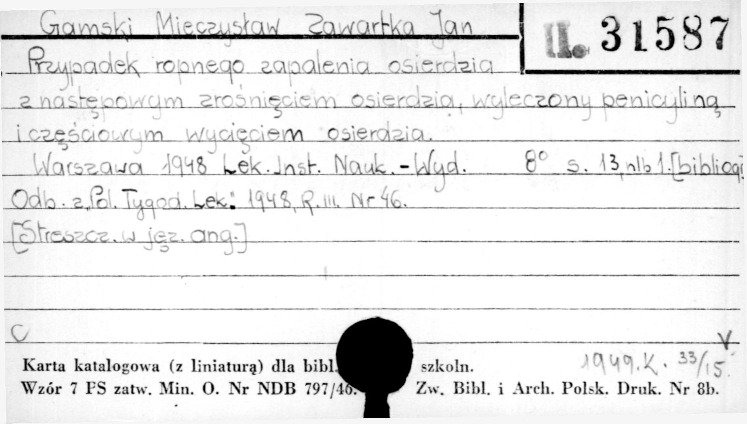 Gamski Mieczysław Zawartka Jan
II. 31587
Przypadek ropnego zapalenia osierdzia
z następowym zrośnięciem osierdzia, wyleczony penicyliną
i częściowym wycięciem osierdzia.
Warszawa 1948 Lek. Inst. Nauk.-Wyd. 8° s. 13, nlb 1. [bibliogr
Odb. z „Pol. Tygod. Lek." 1948, R. III. Nr 46.
[Streszcz. w jęz. ang.]
C
V
1949. K. 33/15.
Karta katalogowa (z liniaturą) dla bibl. szkoln.
Wzór 7 PS zatw. Min. O. Nr NDB 797/46. Zw. Bibl. i Arch. Polsk. Druk. Nr 8b.